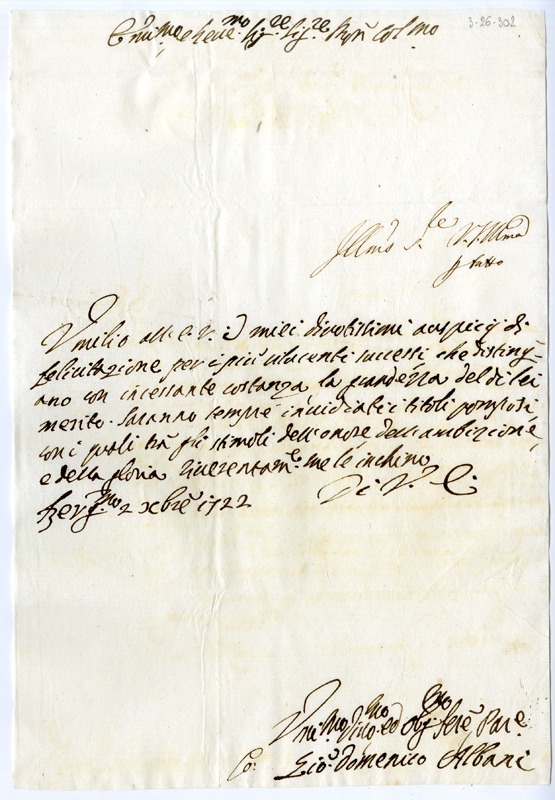 3-26-302
Emi.mo e Reue.mo Sig.re Sig.re Pron Col.mo
Umilio all'E.V. i miei diuotissimi auspicij di
felicitazione per i più piacenti successi, che disting=
ano con incessante costanza la grandezza del di lei
merito. Saranno sempre inuidiati i titoli pomposi
con i quali trà gli stimoli dell'onore dell'ambizione,
e della gloria riuerentam.te me le inchino
Di V. E.
Berg.mo 2 Xbre 1722
Umil.mo Diuo.mo ed Obg.mo Ser.e
Co: Gio: Domenico Albani